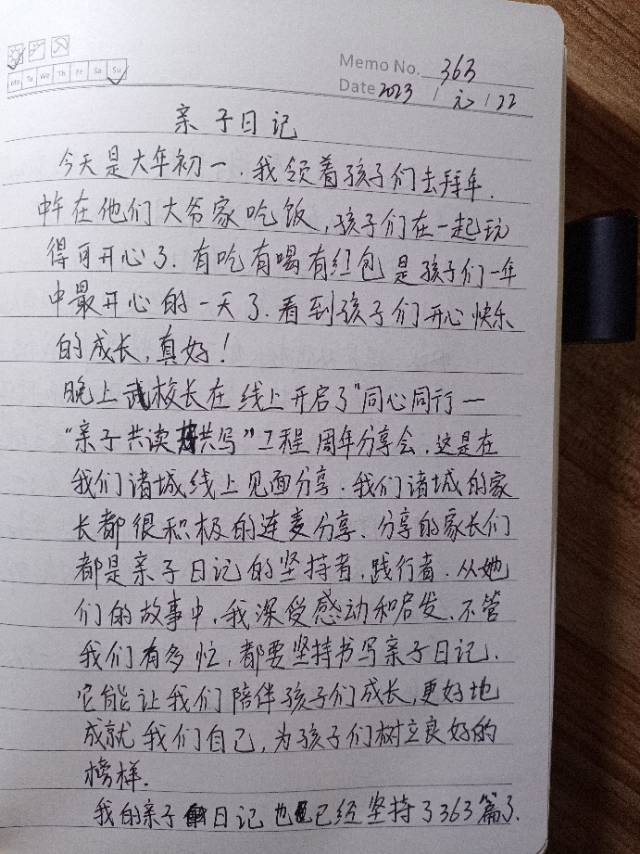 Memo No. 363
Mo Tu We Th Fr Sa Su
Date 2023 / 元 / 22
亲子日记
今天是大年初一.我领着孩子们去拜年.
中午在他们大爷家吃饭,孩子们在一起玩
得可开心了.有吃有喝有红包是孩子们一年
中最开心的一天了.看到孩子们开心快乐
的成长,真好!
晚上武校长在线上开启了"同心同行一
"亲子共读共写"工程周年分享会.这是在
我们诸城线上见面分享.我们诸城的家
长都很积极的连麦分享.分享的家长们
都是亲子日记的坚持者,践行者.从她
们的故事中,我深受感动和启发.不管
我们有多忙,都要坚持书写亲子日记.
它能让我们陪伴孩子们成长,更好地
成就我们自己,为孩子们树立良好的
榜样.
我的亲子日记也已经坚持了363篇了.